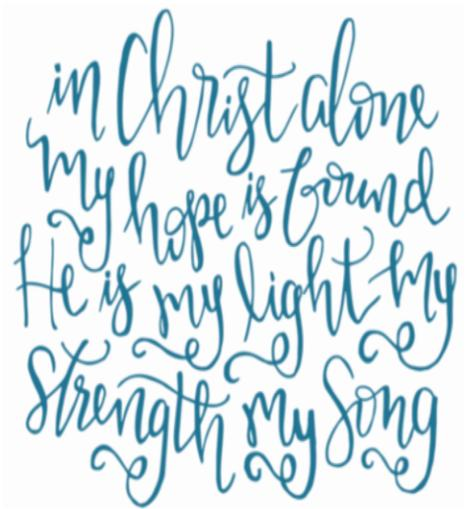 in Christ alone
my hope is found
He is my light my
strength my song